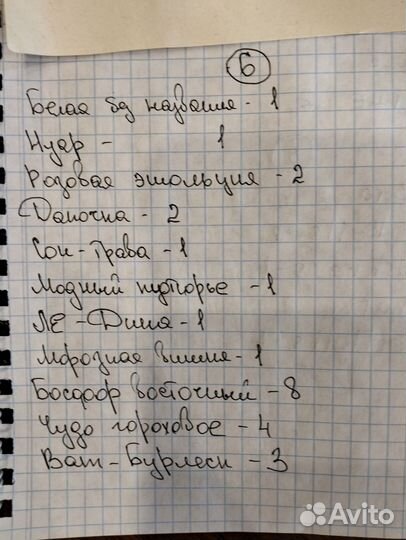 Б
Белая без названия - 1
Нуар - 1
Розовая эмольция - 2
Дамочка - 2
Сон-Трава - 1
Модный - 1
ЛЕ-Дина - 1
Морозная вишня - 1
Босфор восточный - 8
Чудо гороховое - 4
Ват-Бурлеск - 3
Avito